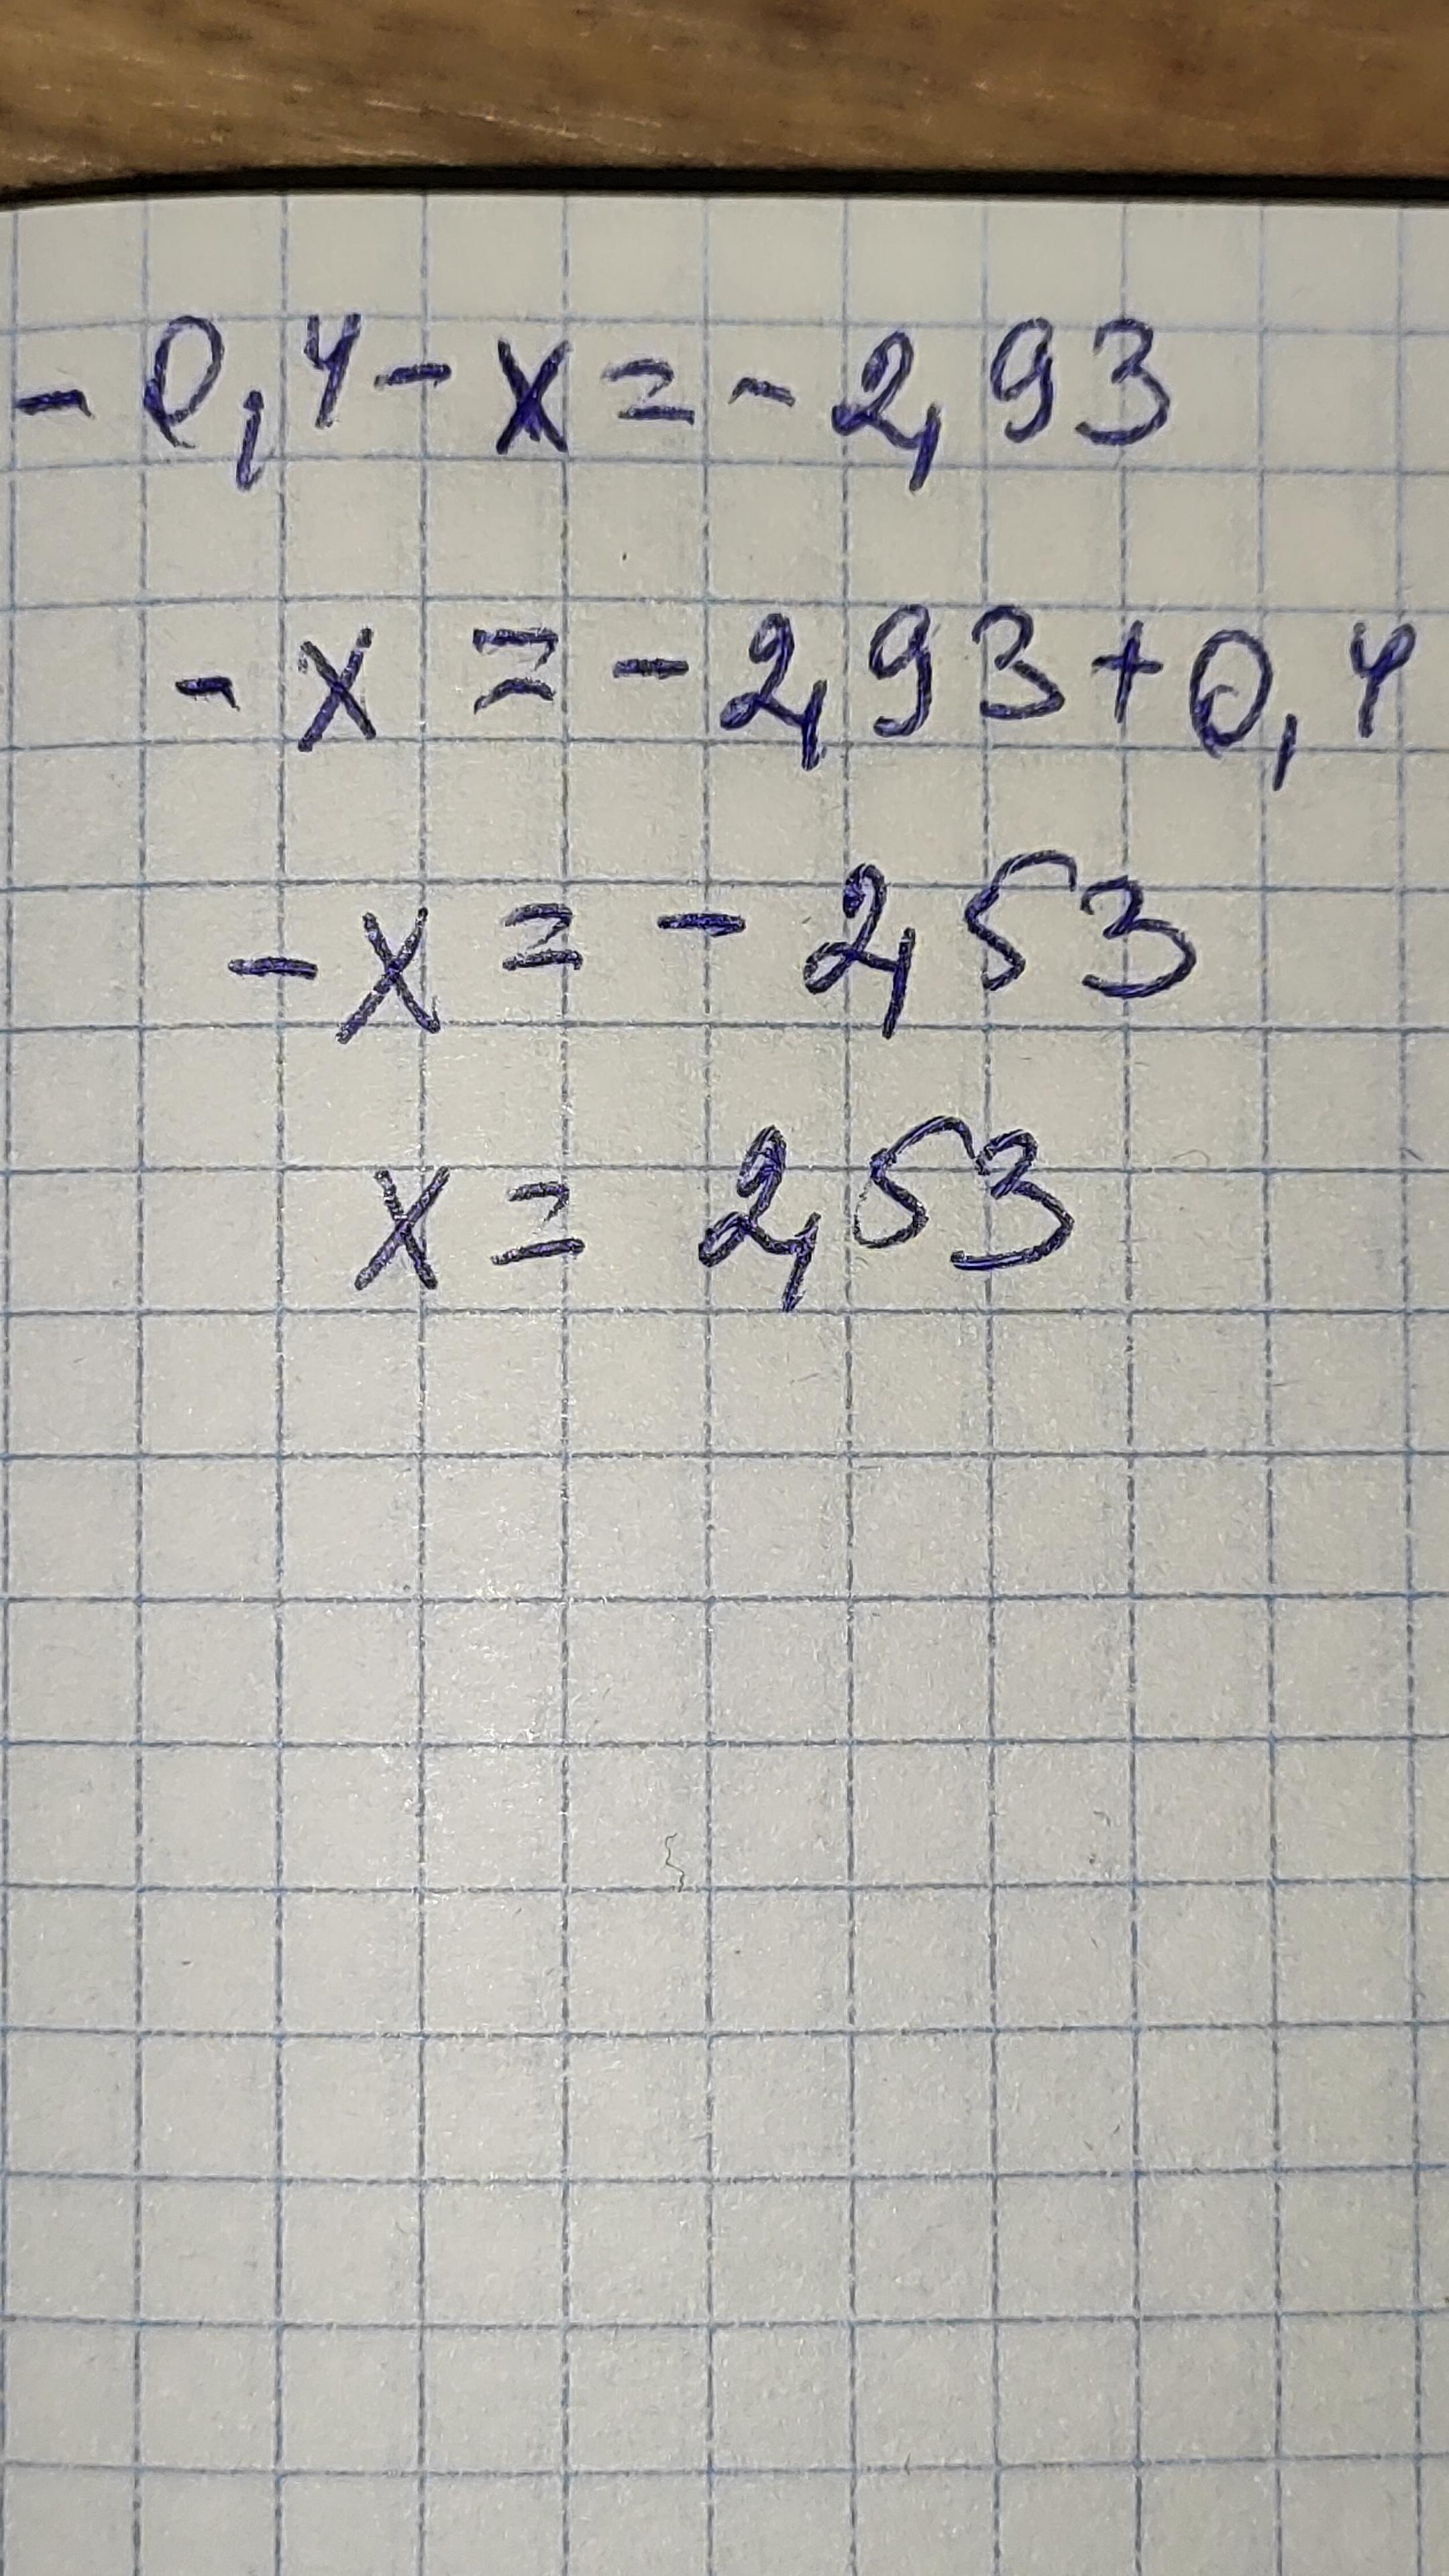 - 0,4 - x = - 2,93
- x = - 2,93 + 0,4
- x = - 2,53
x = 2,53